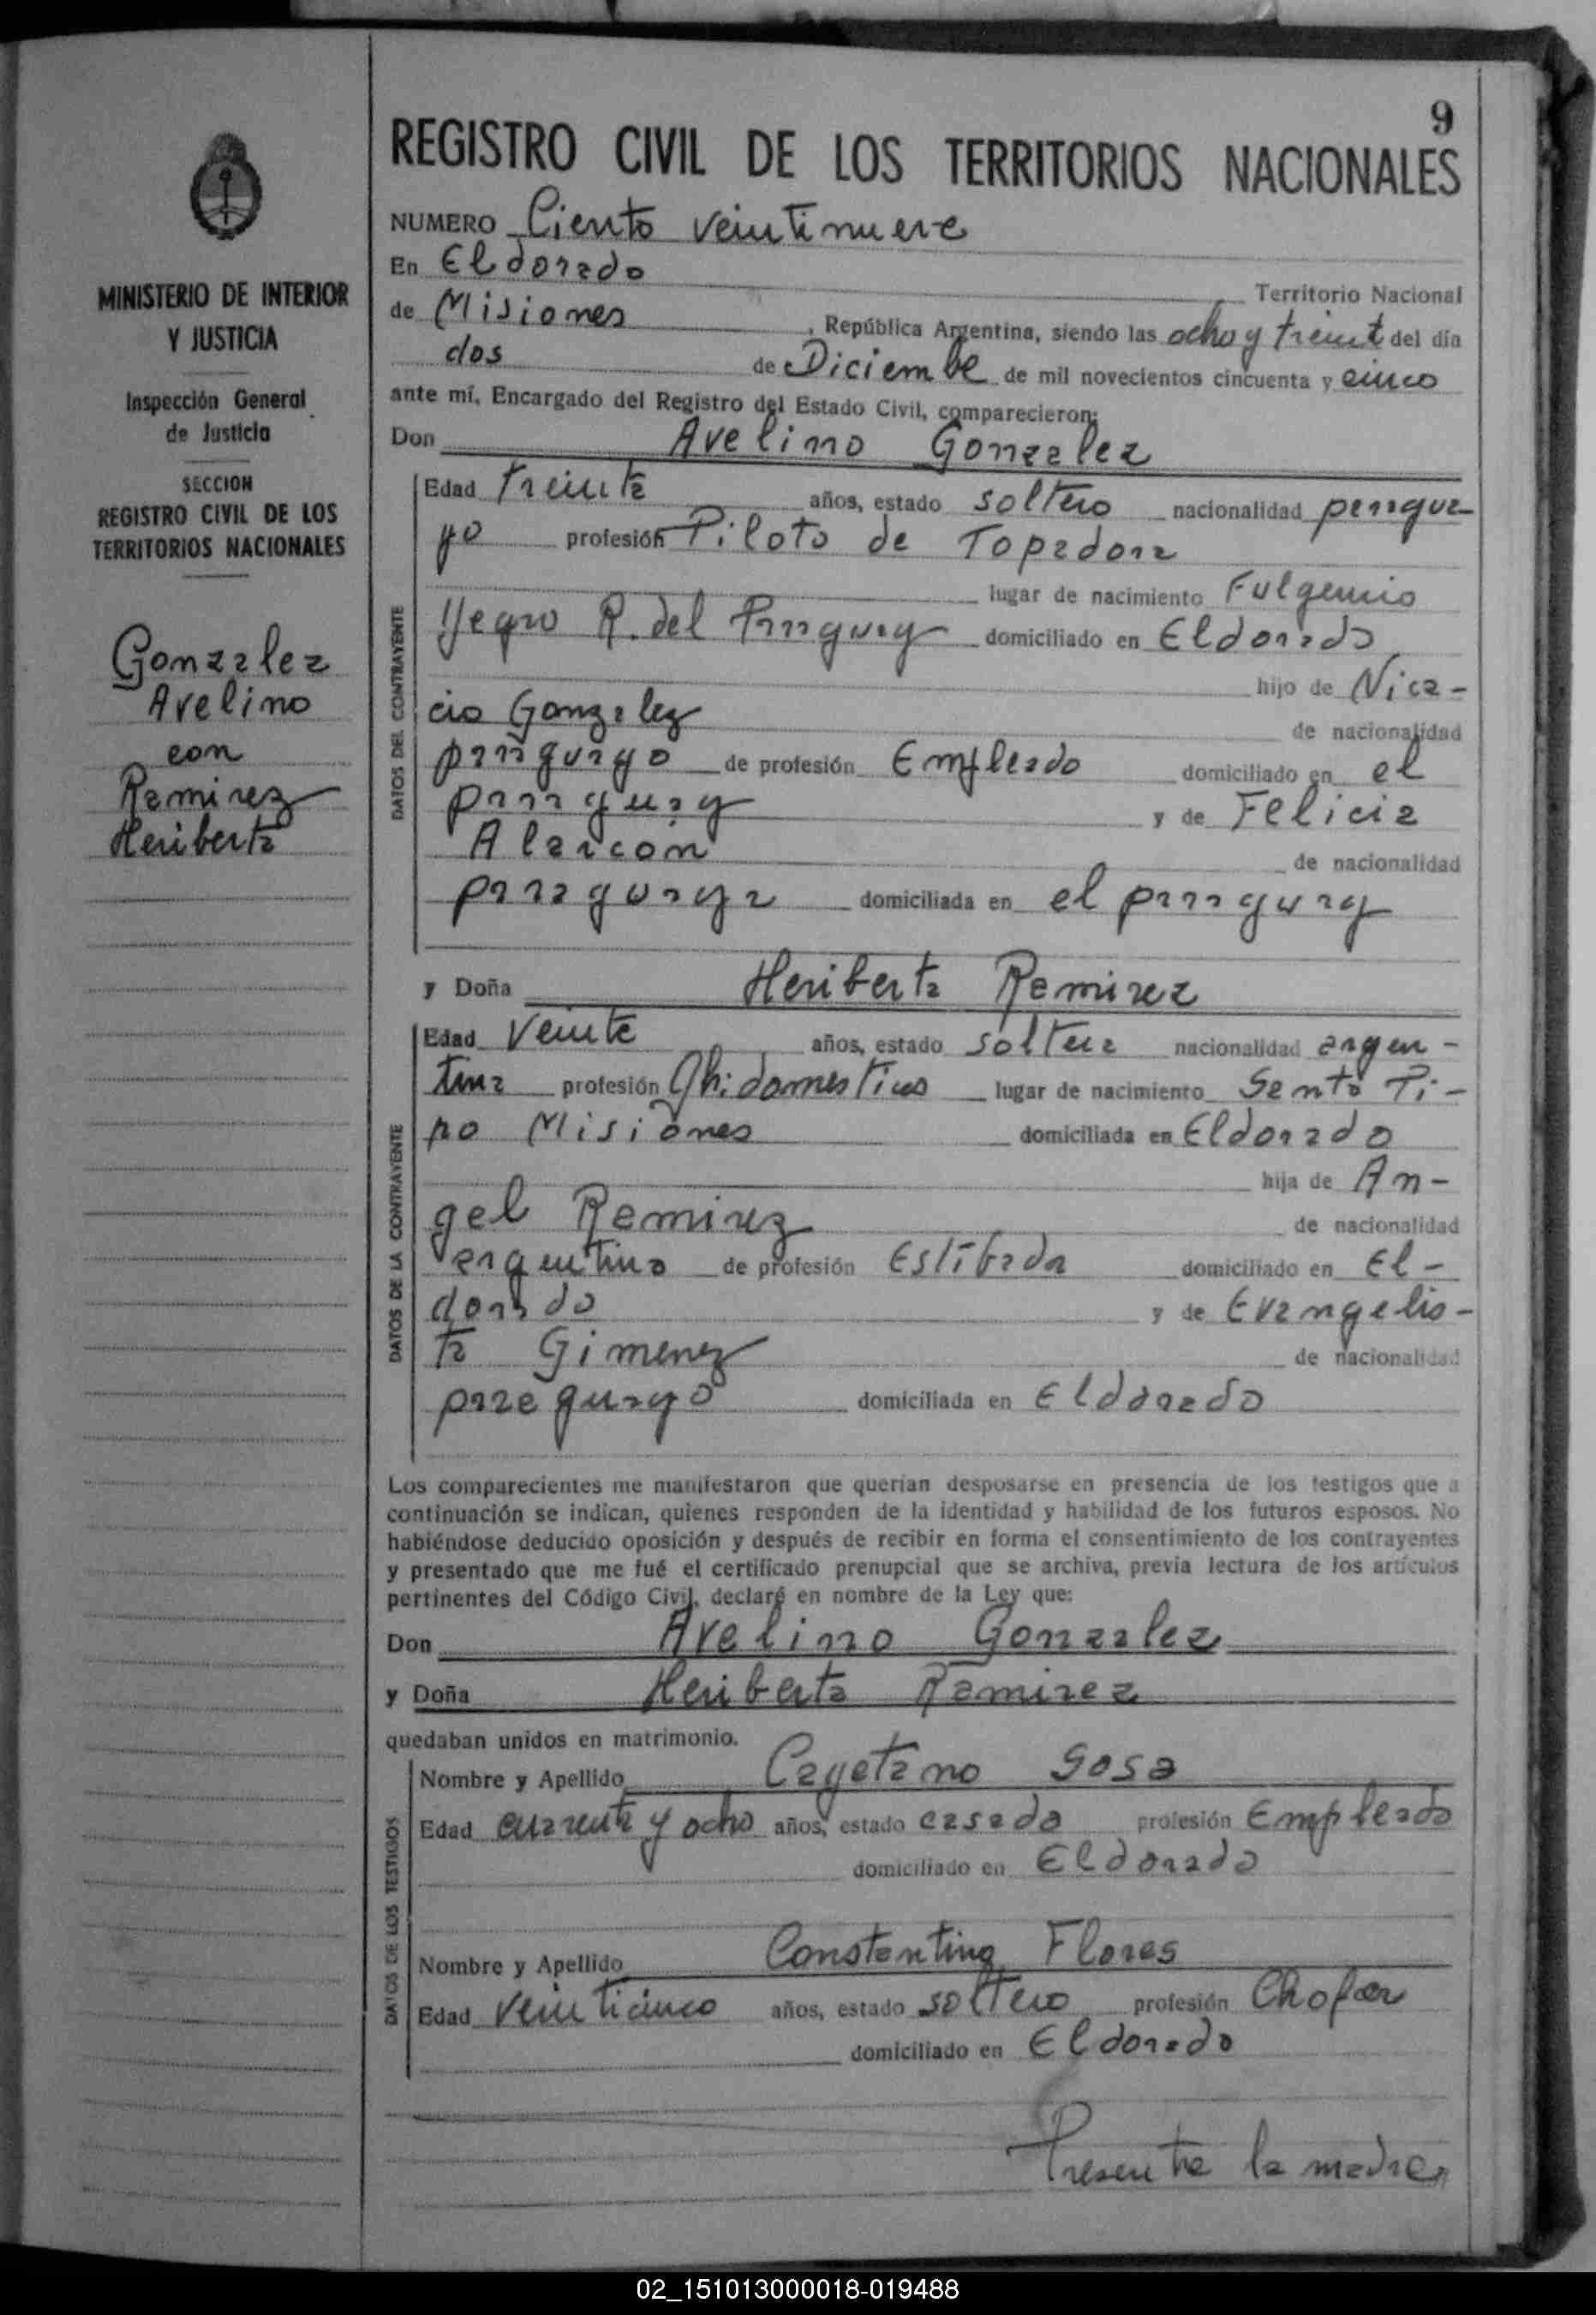 9
REGISTRO CIVIL DE LOS TERRITORIOS NACIONALES
MINISTERIO DE INTERIOR
Y JUSTICIA
Inspección General
de Justicia
SECCION
REGISTRO CIVIL DE LOS
TERRITORIOS NACIONALES
Gonzalez
Avelino
con
Ramirez
Heriberta
NUMERO Ciento veintinueve
En Eldorado
Territorio Nacional
de Misiones, República Argentina, siendo las ocho y treint del día
dos de Diciembe de mil novecientos cincuenta y cinco
ante mí, Encargado del Registro del Estado Civil, comparecieron:
Don Avelino Gonzalez
DATOS DEL CONTRAYENTE
Edad treinta años, estado soltero nacionalidad paragua-
yo profesión Piloto de Topadora
lugar de nacimiento Fulgencio
Yegro R. del Paraguay domiciliado en Eldorado
hijo de Nica-
cio Gonzalez
de nacionalidad
paraguayo de profesión Empleado domiciliado en el
paraguay y de Felicia
Alarcon
de nacionalidad
paraguaya domiciliada en el paraguay
y Doña Heriberta Ramirez
DATOS DE LA CONTRAYENTE
Edad veinte años, estado soltera nacionalidad argen-
tina profesión domesticos lugar de nacimiento Santo Pi-
po Misiones domiciliada en Eldorado
hija de An-
gel Ramirez
de nacionalidad
argentino de profesión Estibador domiciliado en El-
dorado y de Evangelis-
ta Gimenez
de nacionalidad
paraguayo domiciliada en Eldorado
Los comparecientes me manifestaron que querían desposarse en presencia de los testigos que a
continuación se indican, quienes responden de la identidad y habilidad de los futuros esposos. No
habiéndose deducido oposición y después de recibir en forma el consentimiento de los contrayentes
y presentado que me fué el certificado prenupcial que se archiva, previa lectura de los artículos
pertinentes del Código Civil, declaré en nombre de la Ley que:
Don Avelino Gonzalez
y Doña Heriberta Ramirez
quedaban unidos en matrimonio.
DATOS DE LOS TESTIGOS
Nombre y Apellido Cayetano Sosa
Edad cuarenta y ocho años, estado casado profesión Empleado
domiciliado en Eldorado
Nombre y Apellido Constantino Flores
Edad veinticinco años, estado soltero profesión Chofer
domiciliado en Eldorado
Presente la madre
02_151013000018-019488